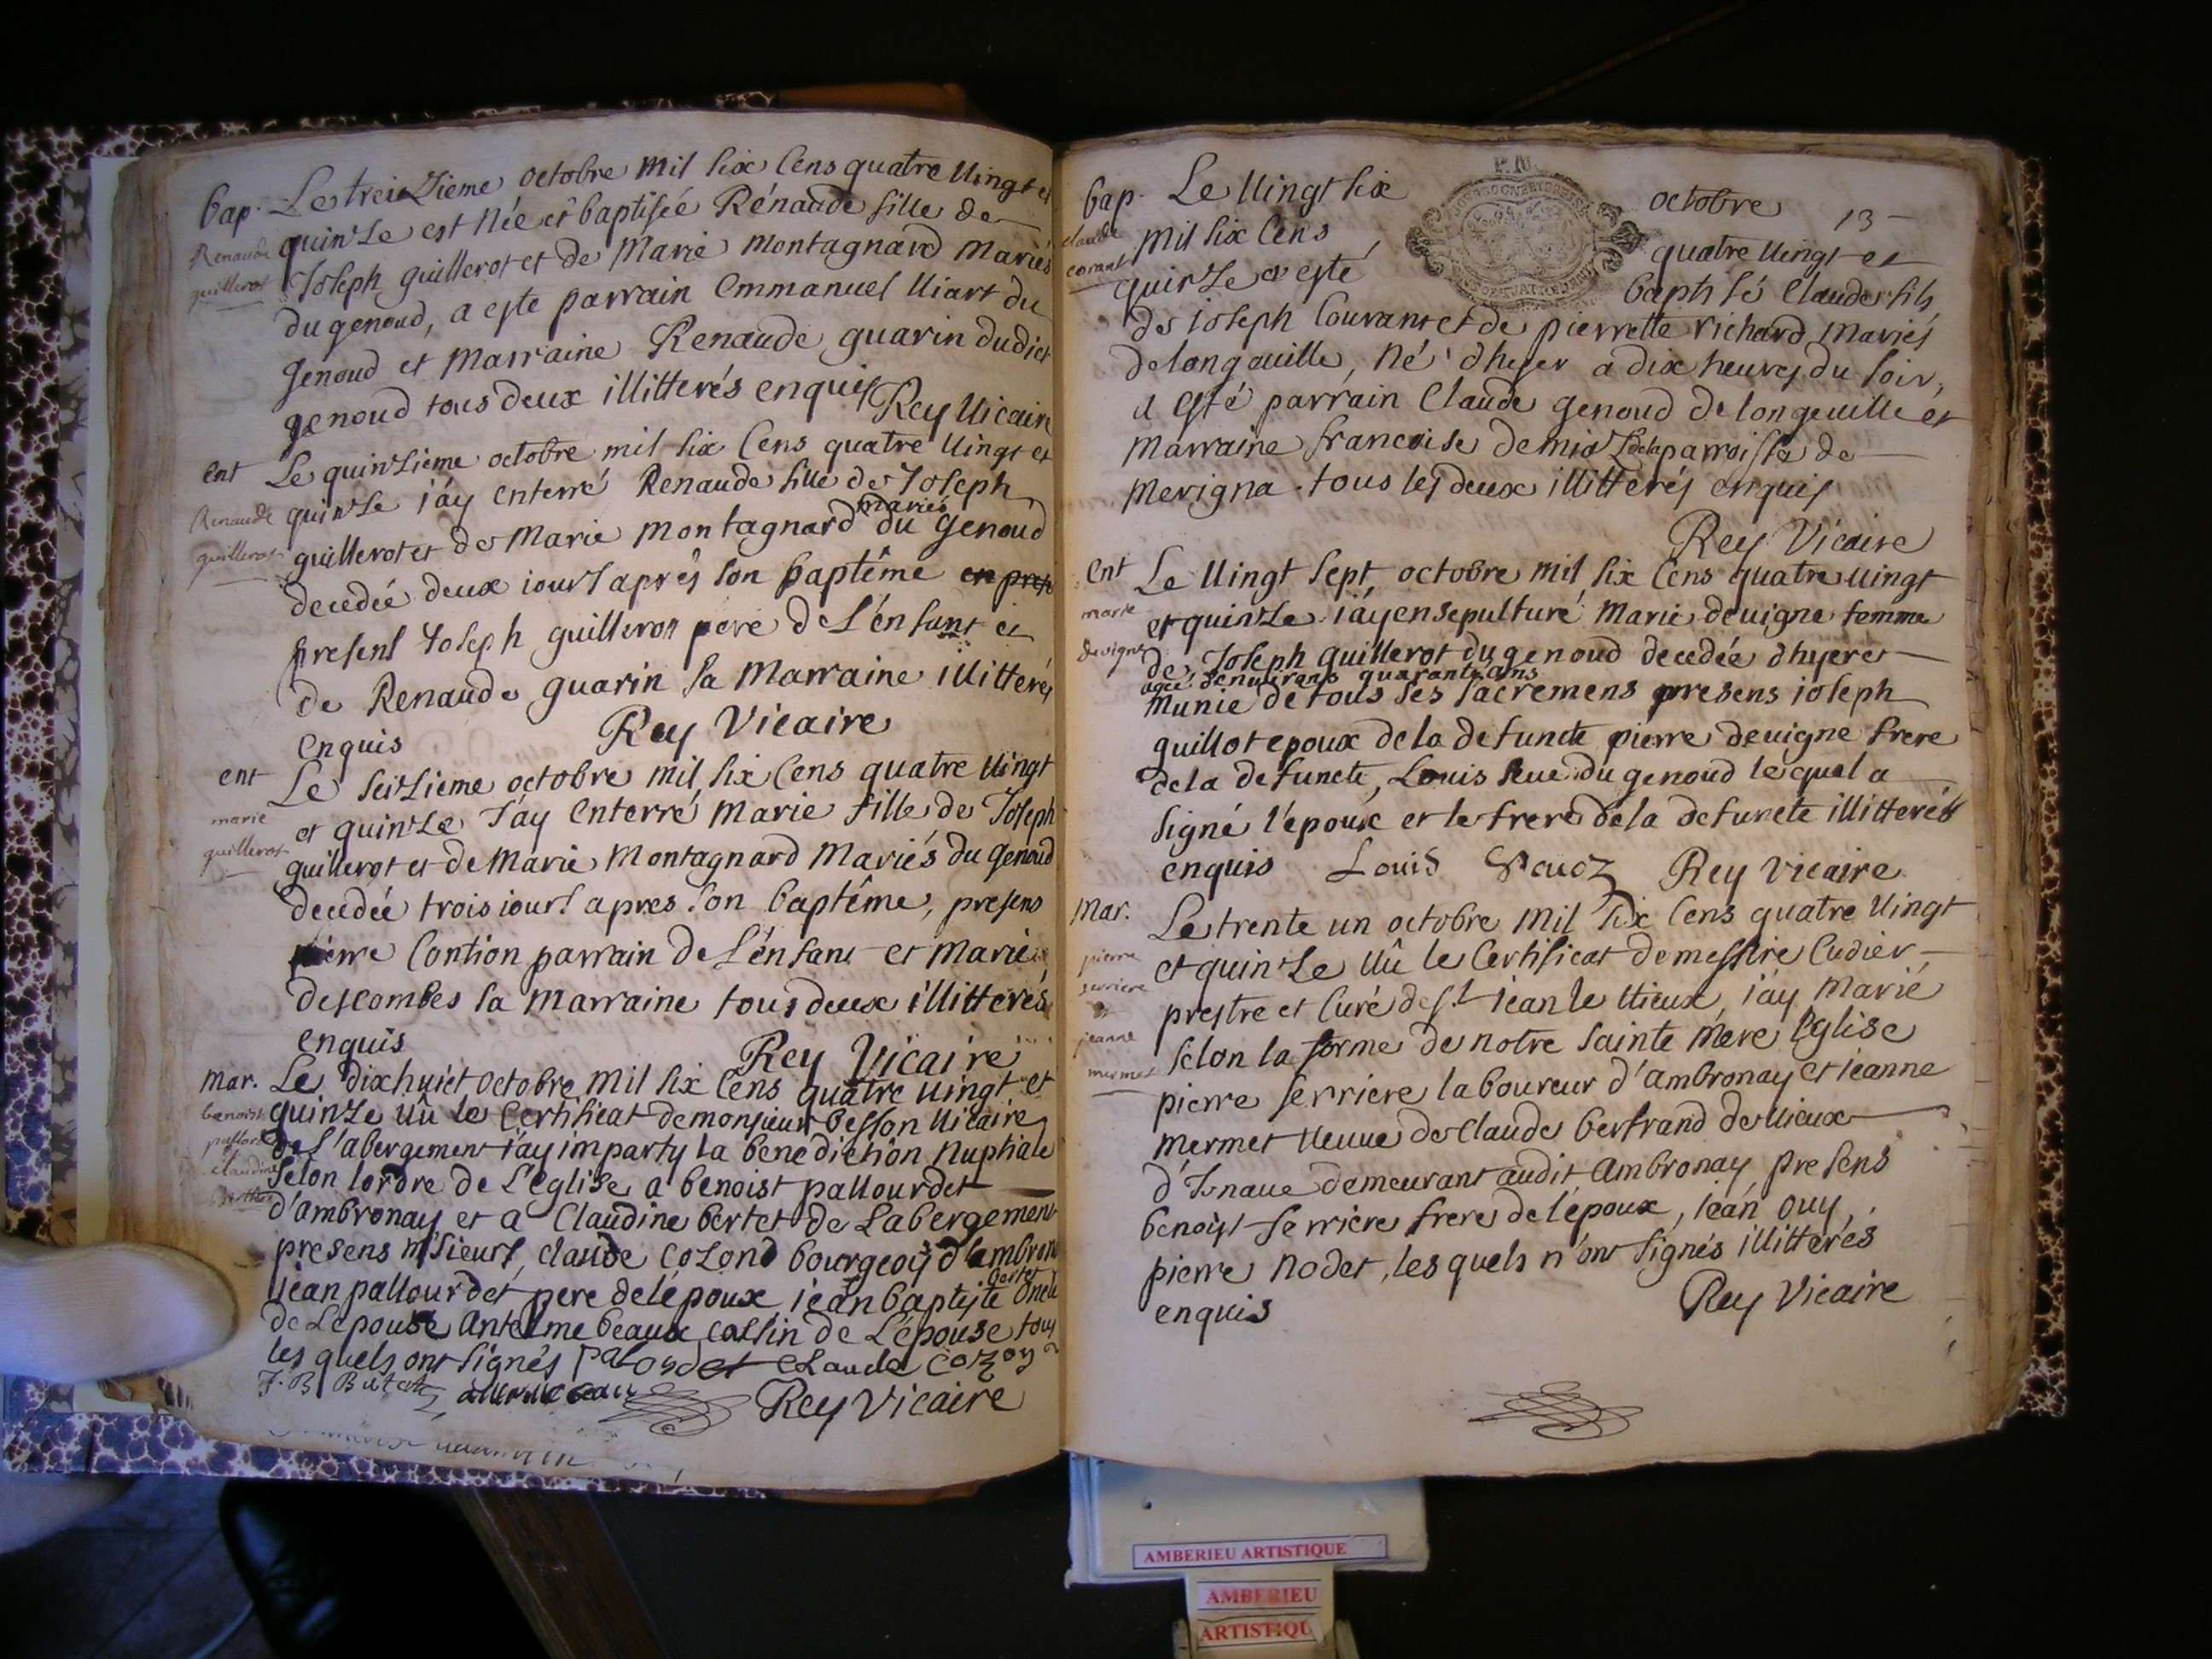 bap. Le treizieme octobre mil six cens quatre vingt et
Renaude quinze est née et baptisée Rénaude fille de
guillerot Joseph guillerot et de Marie montagnard mariés
du genoud, a este parrain emmanuel Uiart du
genoud et marraine Renaude guarin dudict
genoud tous deux illitterés enquis Rey Vicaire
ent Le quinzieme octobre mil six cens quatre vingt et
Renaude quinze j'ay enterré Renaude fille de Joseph
mariés
guillerot guillerot et de Marie montagnard du genoud
decedée deux jours aprês son baptême en pres
present Joseph guilleron pere de l'énfant et
de Renaude guarin sa marraine illitterés
enquis Rey Vicaire
ent Le seizieme octobre mil six cens quatre vingt
marie et quinze J'ay enterré marie fille de Joseph
guillerot guillerot et de marie montagnard mariés du genoud
decedée trois jours apres son baptême, presens
pierre Contion parrain de l'énfant et marie
descombes sa marraine tous deux illitterés
enquis Rey Vicaire
mar. Le dixhuict octobre mil six cens quatre vingt et
benoist quinze vû le certificat de monsieur besson vicaire
de l'abergement j'ay imparty la benediction nuptiale
claudine selon lordre de l'eglise a benoist pallourdet
d'ambronay et a Claudine bertet de Labergement
presens msieurs, claude cozond bourgeois d'ambron
bertet
jean pallourdet pere de lépoux jean baptiste oncle
de lepouse antelme beaux cossin de l'épouse tous
les quels ont signés Palordet claude cozon
J. B. Rey Vicaire
bap. Le vingt six octobre 13
claude mil six cens quatre vingt et
corant quinze a esté baptisé Claude fils
de joseph Couvrant et de pierrette richard mariés
de longeuille, né d'hyer a dix heures du soir,
a esté parrain Claude genoud de longeuille et
marraine francoise demiaz de la parroisse de
merigna. tous les deux illitterés enquis
Rey Vicaire
ent Le vingt sept octobre mil six cens quatre vingt
marie et quinze j'ay ensepulturé Marie deuigne femme
deuigne de Joseph guillerot du genoud decedée dhyer et
agée denuirons quarante ans
munie de tous ses sacremens presens joseph
guillot epoux de la defuncte pierre deuigne frere
de la defuncte, Louis seue du genoud lequel a
signé l'époux et le frere de la defuncte illitterés
enquis Louis Rey vicaire
mar. Le trente un octobre mil six cens quatre vingt
pierre et quinze vû le certificat de messire Cudier
serriere prestre et curé de st jean le vieux, j'ay marié
et
jeanne selon la forme de notre sainte mere l'eglise
mermet pierre serriere laboureur d'ambronay et jeanne
mermet veuve de Claude bertrand de vieux
d'Isnaue demeurant audit ambronay, presens
benoist serriere frere de l'époux, jean ouy,
pierre nodet, les quels n'ont signés illitterés
enquis Rey Vicaire
AMBERIEU ARTISTIQUE
AMBERIEU
ARTISTIQU